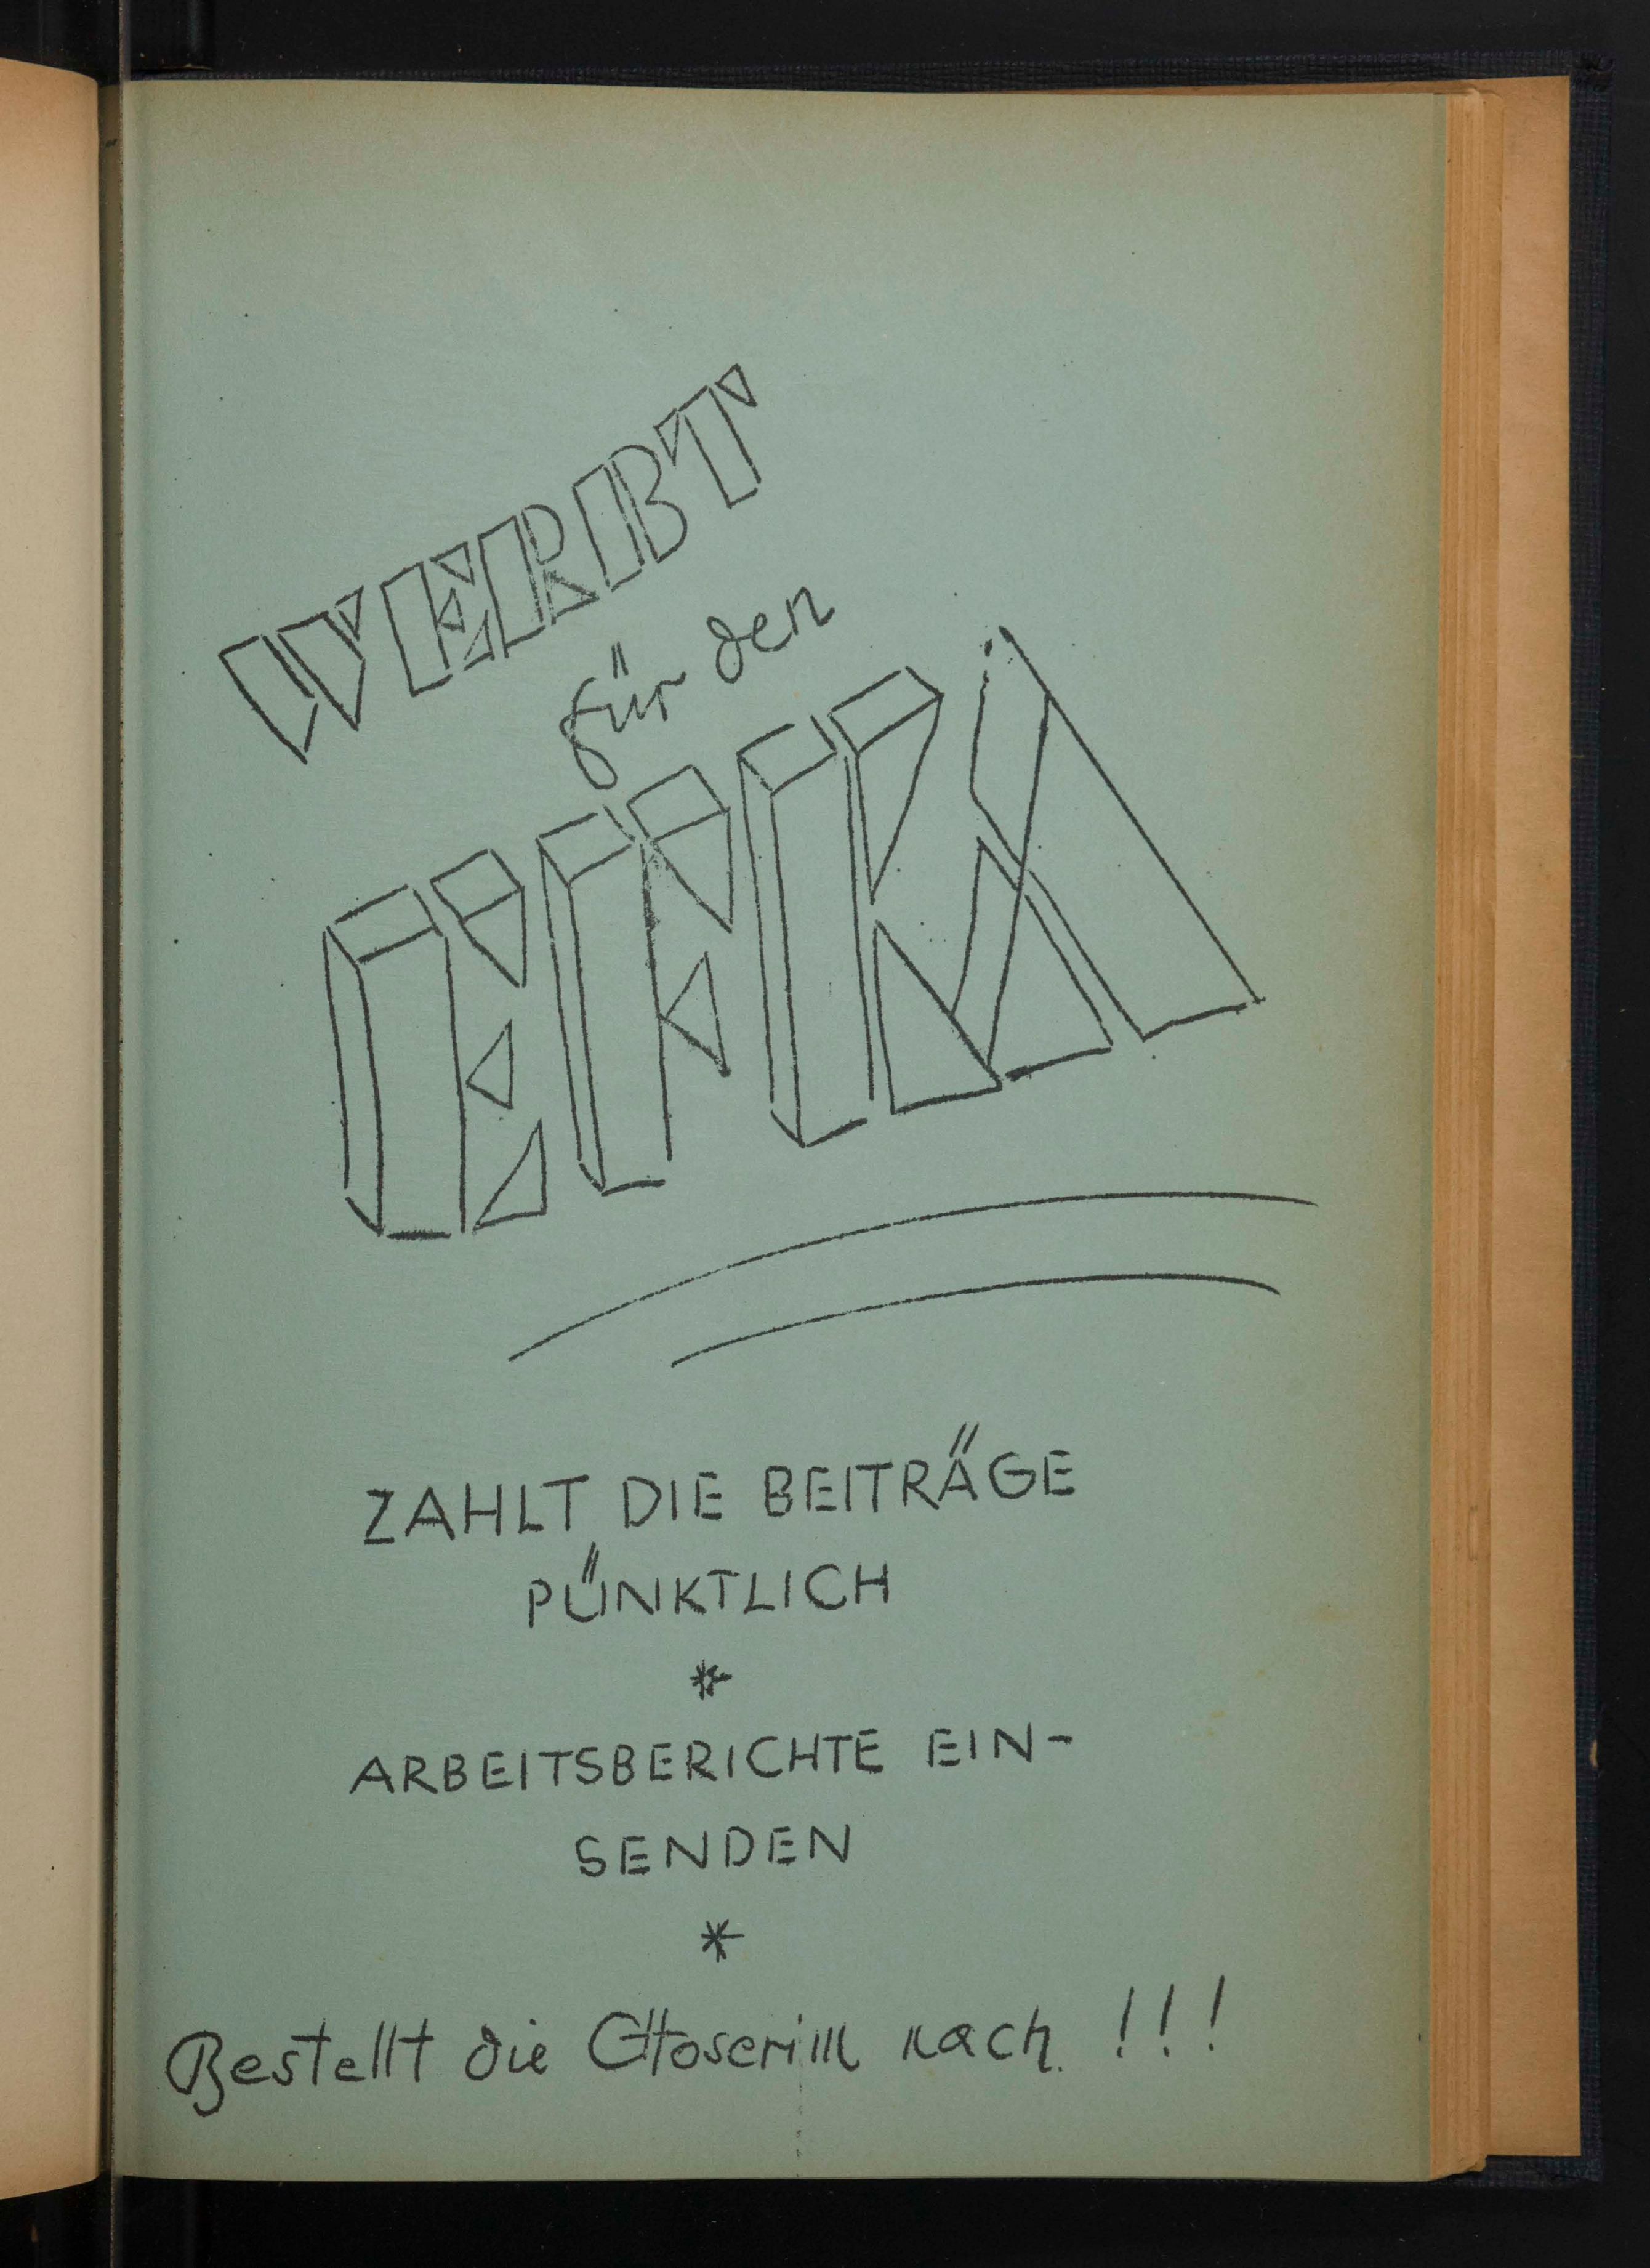 WERBT
für den
EFKA
ZAHLT DIE BEITRÄGE
PÜNKTLICH
*
ARBEITSBERICHTE EIN-
SENDEN
*
Bestellt die Choserim nach !!!